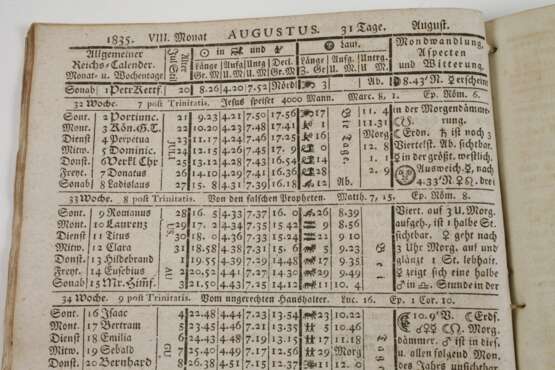 1835. VIII. Monat AUGUSTUS. 31 Tage. August.
Allgemeiner Reichs-Calender. Monat- u. Wochentage
Länge Gr. M Aufg. U.M Untg. U.M Decl. Gr. M Lauf. Länge Z. Gr Aufg. U.M. Untrg. U.M.
Mondwandlung, Aspecten und Witterung.
Sonab 1 Petr Kettf. 20 8.26 4.20 7.52 Nörd 3 Ab. 8.43' N. Erscheint
32 Woche. 7 post Trinitatis. Jesus speiset 4000 Mann. Marc. 8, 1. Ep. Röm. 6.
Sont. 2 Portiunc. 21 9.23 4.21 7.50 17.56 17 11. 4 in der Morgendämme-
Mont. 3 Kön. G.T. 22 10.20 4.23 7.48 17.41 1 11.31 rung.
Dienst 4 Perpetua 23 11.17 4.24 7.46 17.25 15 Morg Erdn. ist noch 3
Mitw. 5 Dominic. 24 12.15 4.26 7.45 17. 9 0 Viertelst. Ab. sichtbar.
Donst. 6 Verkl Chr 25 13.12 4.28 7.43 16.54 14 in der größt. westlich.
Freyt. 7 Donatus 26 14.10 4.29 7.41 16.38 28 Ausweich. nach
Sonab 8 Ladislaus 27 15. 8 4.31 7.39 16.18 12 Ab. 4.33' N. drei
33 Woche. 8 post Trinitatis. Von den falschen Propheten. Matth. 7, 15. Ep. Röm. 8.
Sont. 9 Romanus 28 16. 5 4.33 7.37 16. 0 26 8.39 Viert. auf 3 U. Morg.
Mont. 10 Laurenz 29 17. 2 4.34 7.35 15.42 9 8.56 aufgeh., ist 1 halbe St.
Dienst 11 Titus 30 18. 0 4.36 7.33 15.25 9.13 sichtbar. geht nach
Mitw. 12 Clara 31 18.58 4.38 7.31 15. 6 9.33 3 Uhr Morg. auf und
Donst. 13 Hildebrand 1 19.55 4.39 7.29 14.48 16 9.54 glänzt 1 St. lebhaft.
Freyt. 14 Eusebius 2 20.52 4.41 7.27 14.30 29 10. 9 zeigt sich eine halbe
Sonab 15 Mr. Himf. 3 21.50 4.43 7.25 14.12 11 9.49 Stunde in der
34 Woche. 9 post Trinitatis. Vom ungerechten Haushälter. Luc. 16. Ep. 1 Cor. 10.
Sont. 16 Isaac 4 22.48 4.45 7.23 13.54 23 10.22 10.9' V. Erdf.
Mont. 17 Bertram 5 23.45 4.47 7.21 13.35 10.46 Morg-
Dienst 18 Emilia 6 24.43 4.48 7.19 13.16 17 11.18 dämmer. ist in dies.
Mitw. 19 Sebald 7 25.40 4.49 7.17 12.56 29 Morg u. allen folgend Mon.
Donst. 20 Bernhard 8 26.38 4.51 7.15 12.37 11 des Jahrs unsichtbar